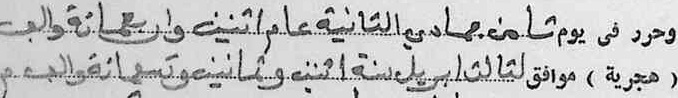 وحرر فى يوم ثامن جمادي الثانية عام اثنين واربعمائة والف
( هجرية ) موافق لثالث ابريل سنة اثنين وثمانين وتسعمائة والف م